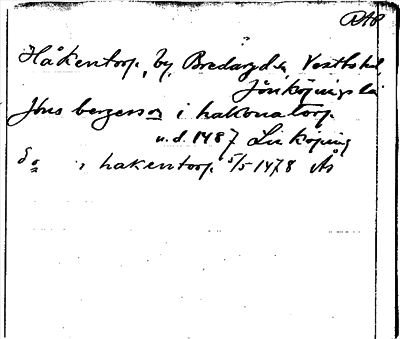 RAP
Håkentorp, by, Bredaryds sn, Vestbo hd,
Jönköpings län
Jöns bergesson i hakonatorp
u.d. 1487 Linköping
do , hakentorp 5/5 1478 Ås